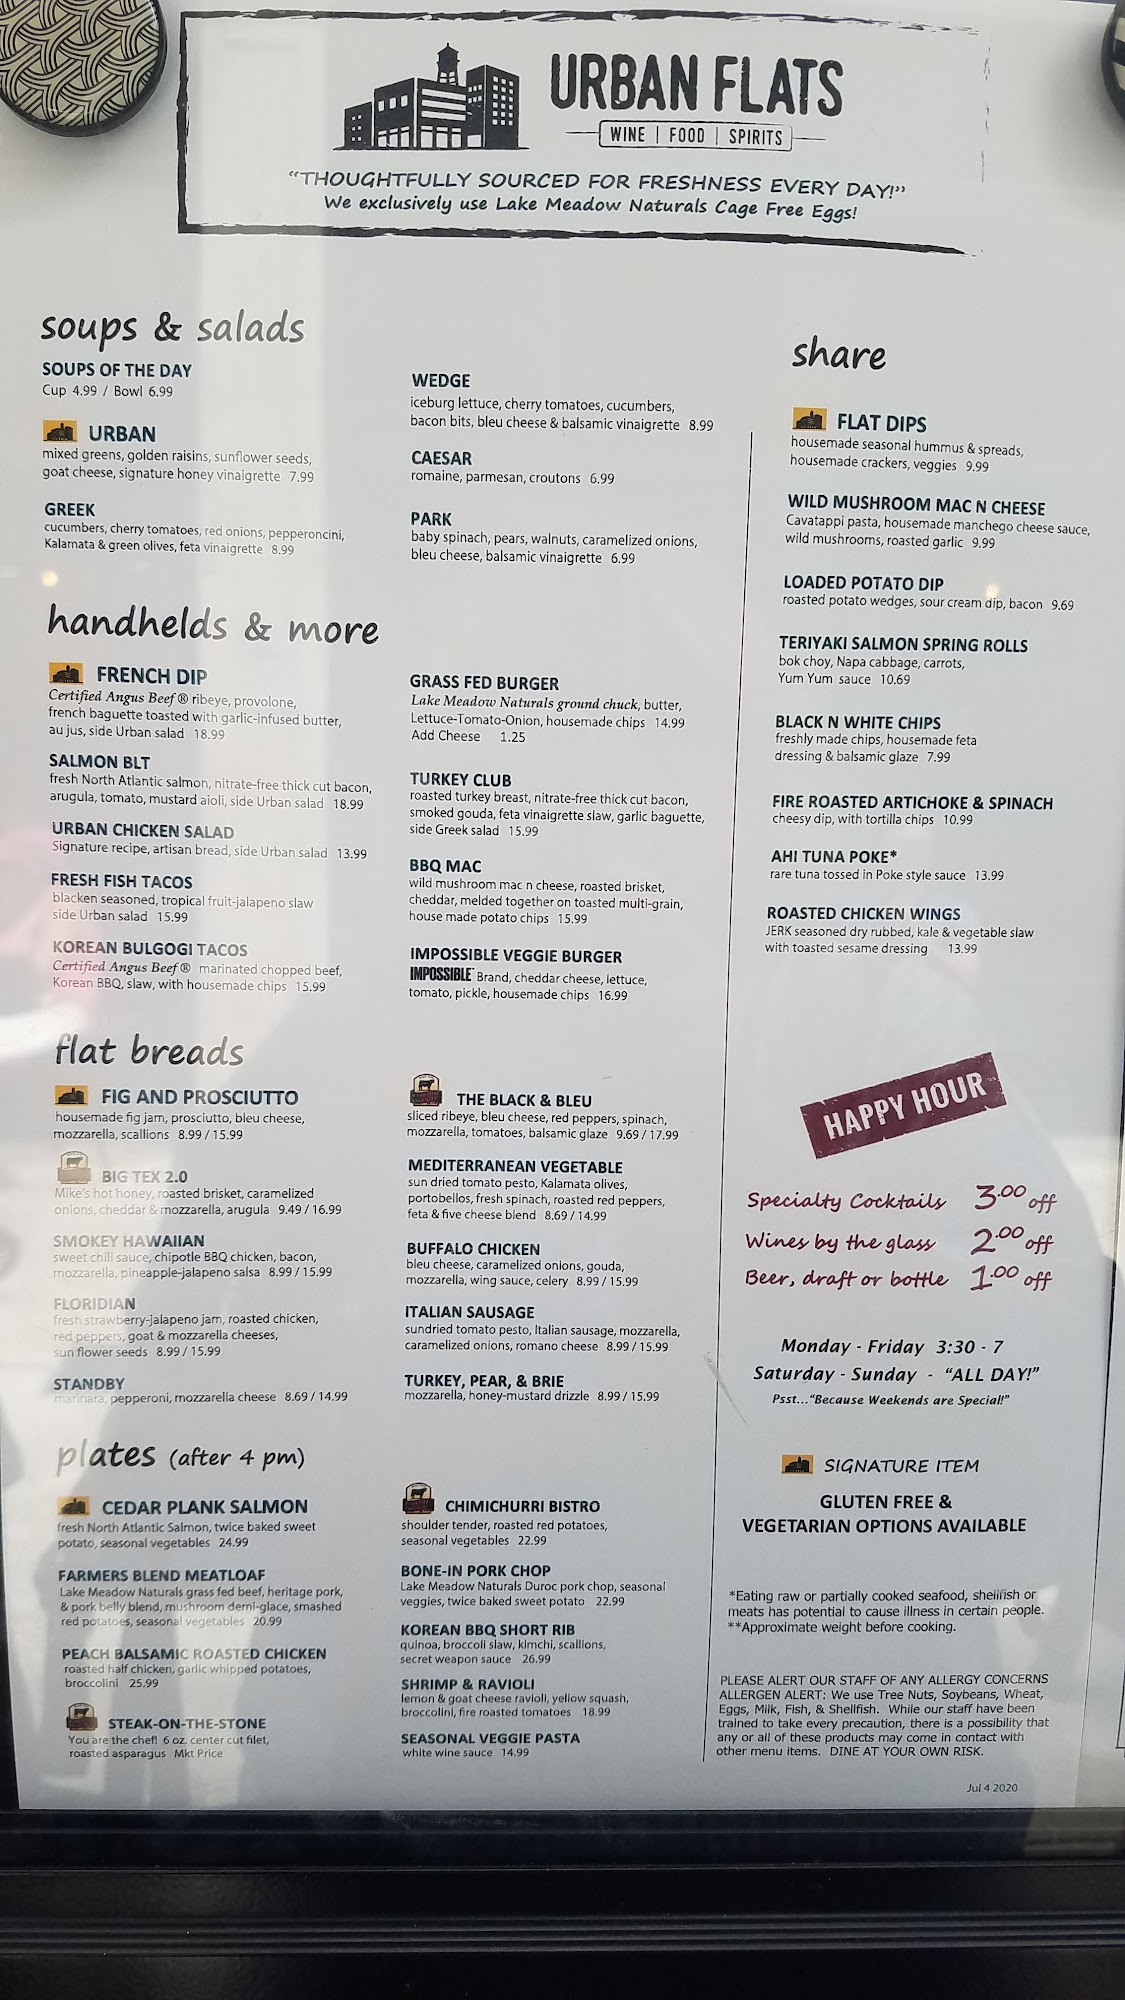 URBAN FLATS
WINE | FOOD | SPIRITS
"THOUGHTFULLY SOURCED FOR FRESHNESS EVERY DAY!"
We exclusively use Lake Meadow Naturals Cage Free Eggs!
soups & salads
SOUPS OF THE DAY
Cup 4.99 / Bowl 6.99
URBAN
mixed greens, golden raisins, sunflower seeds,
goat cheese, signature honey vinaigrette 7.99
GREEK
cucumbers, cherry tomatoes, red onions, pepperoncini,
Kalamata & green olives, feta vinaigrette 8.99
WEDGE
iceburg lettuce, cherry tomatoes, cucumbers,
bacon bits, bleu cheese & balsamic vinaigrette 8.99
CAESAR
romaine, parmesan, croutons 6.99
PARK
baby spinach, pears, walnuts, caramelized onions,
bleu cheese, balsamic vinaigrette 6.99
handhelds & more
FRENCH DIP
Certified Angus Beef® ribeye, provolone,
french baguette toasted with garlic-infused butter,
au jus, side Urban salad 18.99
SALMON BLT
fresh North Atlantic salmon, nitrate-free thick cut bacon,
arugula, tomato, mustard aioli, side Urban salad 18.99
URBAN CHICKEN SALAD
Signature recipe, artisan bread, side Urban salad 13.99
FRESH FISH TACOS
blacken seasoned, tropical fruit-jalapeno slaw
side Urban salad 15.99
KOREAN BULGOGI TACOS
Certified Angus Beef® marinated chopped beef,
Korean BBQ, slaw, with housemade chips 15.99
GRASS FED BURGER
Lake Meadow Naturals ground chuck, butter,
Lettuce-Tomato-Onion, housemade chips 14.99
Add Cheese 1.25
TURKEY CLUB
roasted turkey breast, nitrate-free thick cut bacon,
smoked gouda, feta vinaigrette slaw, garlic baguette,
side Greek salad 15.99
BBQ MAC
wild mushroom mac n cheese, roasted brisket,
cheddar, melded together on toasted multi-grain,
house made potato chips 15.99
IMPOSSIBLE VEGGIE BURGER
IMPOSSIBLE™ Brand, cheddar cheese, lettuce,
tomato, pickle, housemade chips 16.99
flat breads
FIG AND PROSCIUTTO
housemade fig jam, prosciutto, bleu cheese,
mozzarella, scallions 8.99 / 15.99
BIG TEX 2.0
Mike's hot honey, roasted brisket, caramelized
onions, cheddar & mozzarella, arugula 9.49 / 16.99
SMOKEY HAWAIIAN
sweet chili sauce, chipotle BBQ chicken, bacon,
mozzarella, pineapple-jalapeno salsa 8.99 / 15.99
FLORIDIAN
fresh strawberry-jalapeno jam, roasted chicken,
red peppers, goat & mozzarella cheeses,
sun flower seeds 8.99 / 15.99
STANDBY
marinara, pepperoni, mozzarella cheese 8.69 / 14.99
THE BLACK & BLEU
sliced ribeye, bleu cheese, red peppers, spinach,
mozzarella, tomatoes, balsamic glaze 9.69 / 17.99
MEDITERRANEAN VEGETABLE
sun dried tomato pesto, Kalamata olives,
portobellos, fresh spinach, roasted red peppers,
feta & five cheese blend 8.69 / 14.99
BUFFALO CHICKEN
bleu cheese, caramelized onions, gouda,
mozzarella, wing sauce, celery 8.99 / 15.99
ITALIAN SAUSAGE
sundried tomato pesto, Italian sausage, mozzarella,
caramelized onions, romano cheese 8.99 / 15.99
TURKEY, PEAR, & BRIE
mozzarella, honey-mustard drizzle 8.99 / 15.99
plates (after 4 pm)
CEDAR PLANK SALMON
fresh North Atlantic Salmon, twice baked sweet
potato, seasonal vegetables 24.99
FARMERS BLEND MEATLOAF
Lake Meadow Naturals grass fed beef, heritage pork,
& pork belly blend, mushroom demi-glace, smashed
red potatoes, seasonal vegetables 20.99
PEACH BALSAMIC ROASTED CHICKEN
roasted half chicken, garlic whipped potatoes,
broccolini 25.99
STEAK-ON-THE-STONE
You are the chef! 6 oz. center cut filet,
roasted asparagus Mkt Price
CHIMICHURRI BISTRO
shoulder tender, roasted red potatoes,
seasonal vegetables 22.99
BONE-IN PORK CHOP
Lake Meadow Naturals Duroc pork chop, seasonal
veggies, twice baked sweet potato 22.99
KOREAN BBQ SHORT RIB
quinoa, broccoli slaw, kimchi, scallions,
secret weapon sauce 26.99
SHRIMP & RAVIOLI
lemon & goat cheese ravioli, yellow squash,
broccolini, fire roasted tomatoes 18.99
SEASONAL VEGGIE PASTA
white wine sauce 14.99
share
FLAT DIPS
housemade seasonal hummus & spreads,
housemade crackers, veggies 9.99
WILD MUSHROOM MAC N CHEESE
Cavatappi pasta, housemade manchego cheese sauce,
wild mushrooms, roasted garlic 9.99
LOADED POTATO DIP
roasted potato wedges, sour cream dip, bacon 9.69
TERIYAKI SALMON SPRING ROLLS
bok choy, Napa cabbage, carrots,
Yum Yum sauce 10.69
BLACK N WHITE CHIPS
freshly made chips, housemade feta
dressing & balsamic glaze 7.99
FIRE ROASTED ARTICHOKE & SPINACH
cheesy dip, with tortilla chips 10.99
AHI TUNA POKE*
rare tuna tossed in Poke style sauce 13.99
ROASTED CHICKEN WINGS
JERK seasoned dry rubbed, kale & vegetable slaw
with toasted sesame dressing 13.99
HAPPY HOUR
Specialty Cocktails 3.00 off
Wines by the glass 2.00 off
Beer, draft or bottle 1.00 off
Monday - Friday 3:30 - 7
Saturday - Sunday - "ALL DAY!"
Psst..."Because Weekends are Special!"
SIGNATURE ITEM
GLUTEN FREE &
VEGETARIAN OPTIONS AVAILABLE
*Eating raw or partially cooked seafood, shellfish or
meats has potential to cause illness in certain people.
**Approximate weight before cooking.
PLEASE ALERT OUR STAFF OF ANY ALLERGY CONCERNS
ALLERGEN ALERT: We use Tree Nuts, Soybeans, Wheat,
Eggs, Milk, Fish, & Shellfish. While our staff have been
trained to take every precaution, there is a possibility that
any or all of these products may come in contact with
other menu items. DINE AT YOUR OWN RISK.
Jul 4 2020